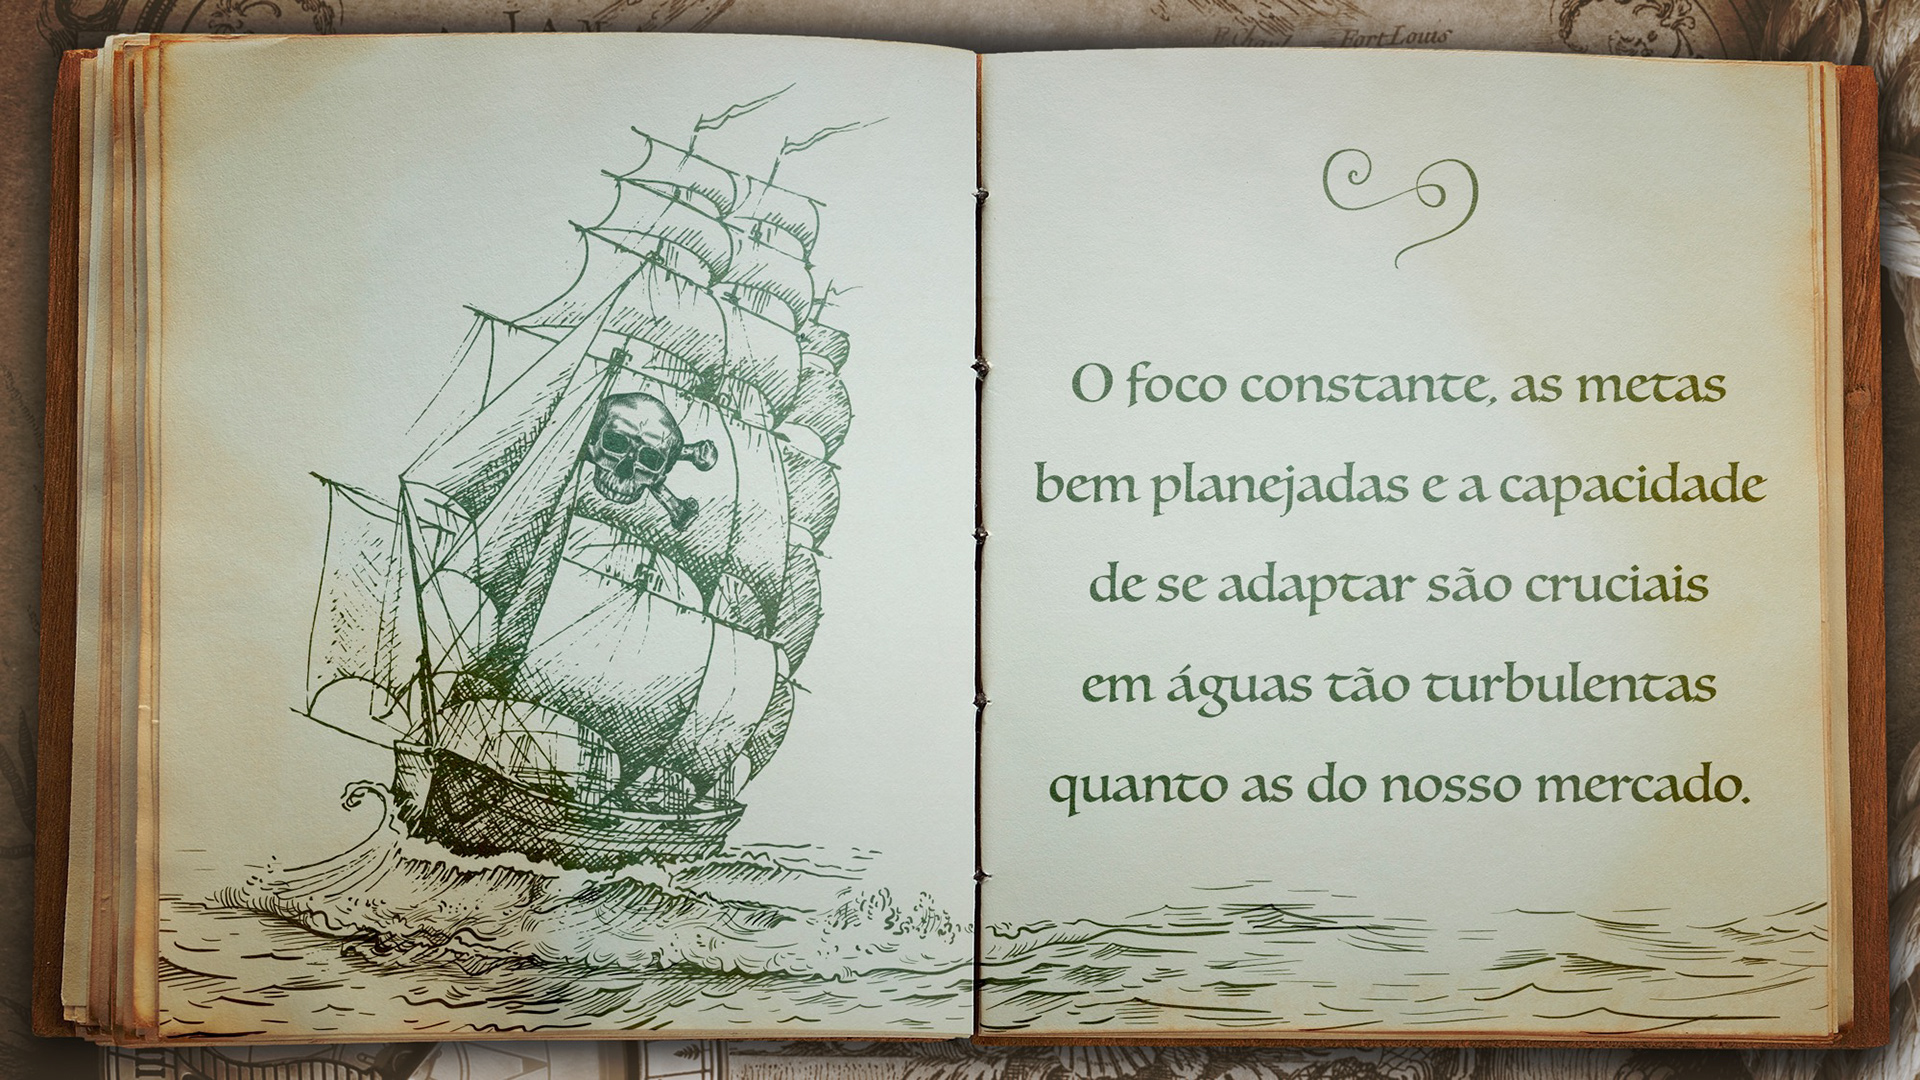 Fort Louis
O foco constante, as metas
bem planejadas e a capacidade
de se adaptar são cruciais
em águas tão turbulentas
quanto as do nosso mercado.